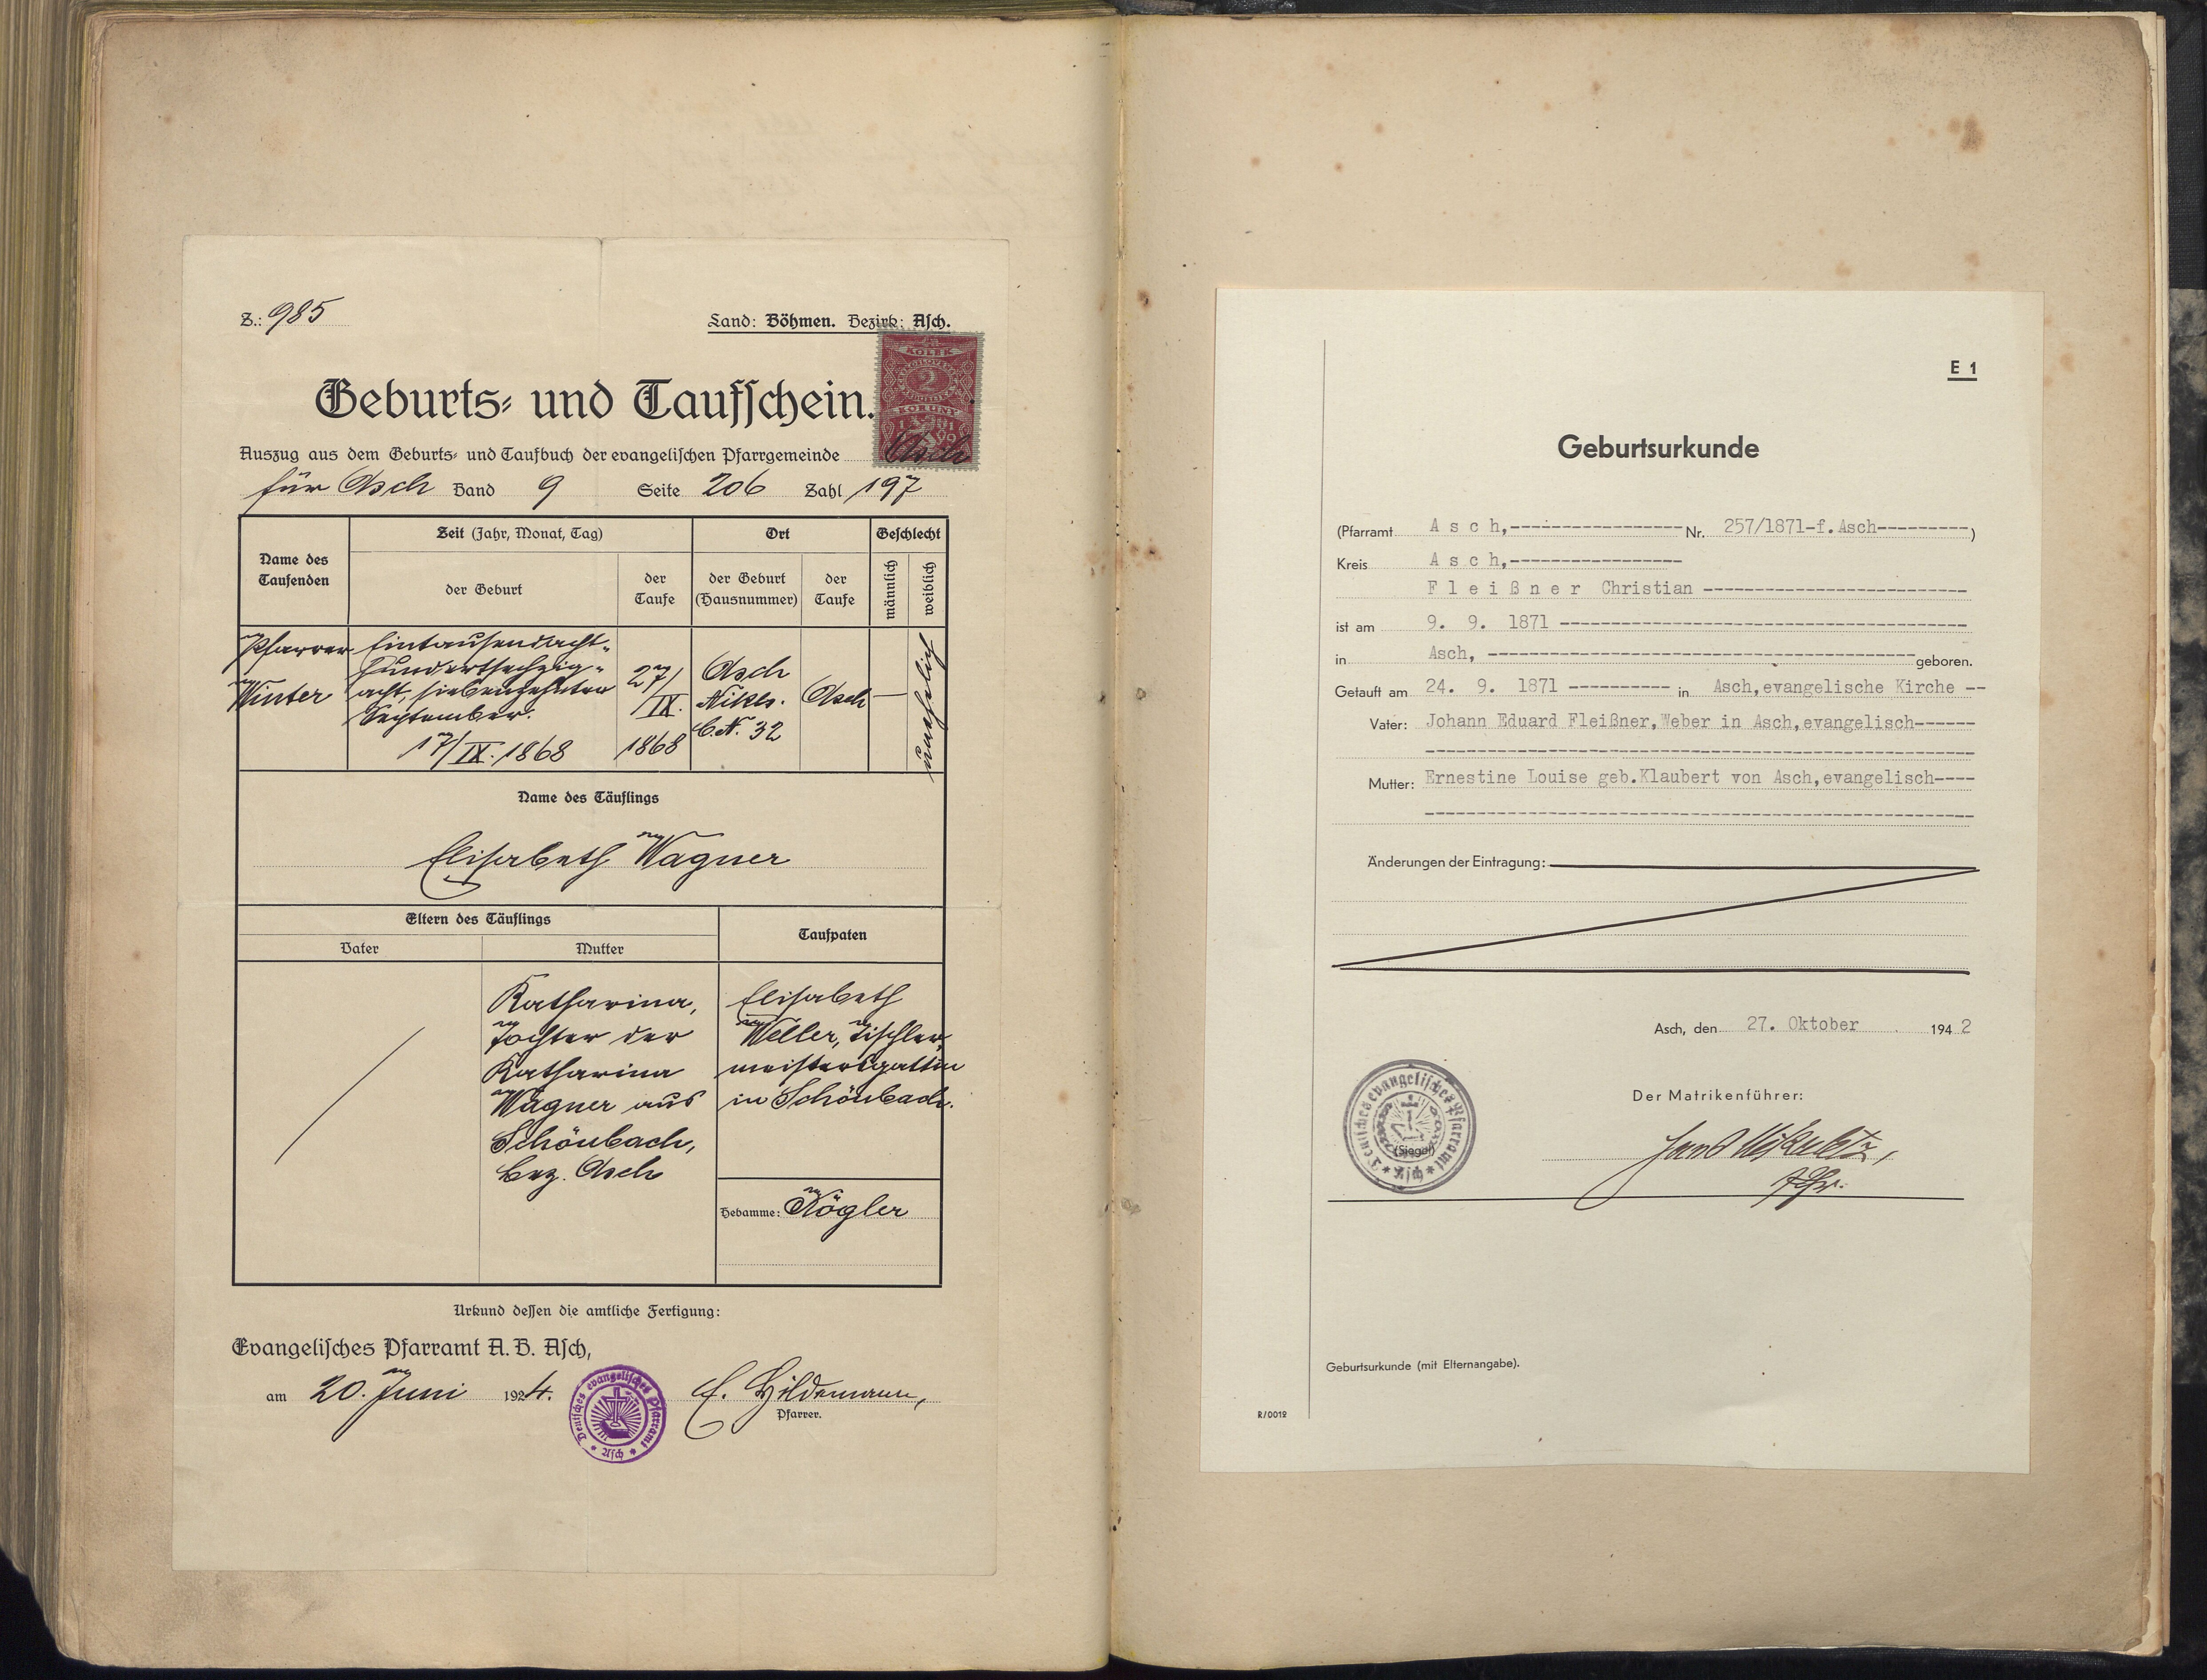 Z.: 985
Land: Böhmen. Bezirk: Asch.
KOLEK
2
KORUNY
1919
Geburts- und Taufschein.
Auszug aus dem Geburts- und Taufbuch der evangelischen Pfarrgemeinde Asch
für Asch Band 9 Seite 206 Zahl 197
Name des Taufenden
Zeit (Jahr, Monat, Tag)
Ort
Geschlecht
der Geburt
der Taufe
der Geburt (Hausnummer)
der Taufe
männlich
weiblich
Pfarrer
Winter
Eintausendacht-
hundertsechzig-
acht, siebenzehnten
September.
17/IX. 1868
27/
IX.
1868
Asch
Nikls.
C.N. 32
Asch
—
unehelich
Name des Täuflings
Elisabeth Wagner
Eltern des Täuflings
Taufpaten
Vater
Mutter
Katharina,
Tochter der
Katharina
Wagner aus
Schönbach,
Bez. Asch
Elisabeth
Weller, Tischler-
meistersgattin
in Schönbach.
Hebamme: Kögler
Urkund dessen die amtliche Fertigung:
Evangelisches Pfarramt A. B. Asch,
am 20. Juni 1924.
Deutsches evangelisches Pfarramt * Asch *
E. Hildemann,
Pfarrer.
E 1
Geburtsurkunde
(Pfarramt A s c h,----------------- Nr. 257/1871-f.Asch---------)
Kreis A s c h,-----------------
F l e i ß n e r Christian --------------------------
ist am 9. 9. 1871 ----------------------------------------
in Asch, ------------------------------------------ geboren.
Getauft am 24. 9. 1871 ---------- in Asch,evangelische Kirche --
Vater: Johann Eduard Fleißner,Weber in Asch,evangelisch------
Mutter: Ernestine Louise geb.Klaubert von Asch,evangelisch----
Änderungen der Eintragung:
Asch, den 27. Oktober 1942
Der Matrikenführer:
Deutsches evangelisches Pfarramt * Asch *
(Siegel)
Pfr.
Geburtsurkunde (mit Elternangabe).
R/0019